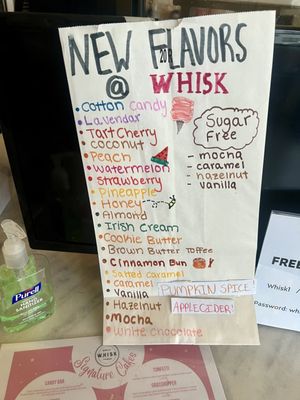 NEW FLAVORS
@ WHISK
Cotton candy
Lavendar
Tart Cherry
coconut
Peach
watermelon
strawberry
Pineapple
Honey
Almond
Irish Cream
Cookie Butter
Brown Butter Toffee
Cinnamon Bun
Salted caramel
caramel
Vanilla
Hazelnut
Mocha
White chocolate
Sugar
Free
- mocha
- caramel
- hazelnut
- vanilla
PUMPKIN SPICE
APPLE CIDER
PURELL
FREE
Whisk1
Password: wh
WHISK
Signature Cakes
CANDY BAR
CONFETTI
GRASSHOPPER